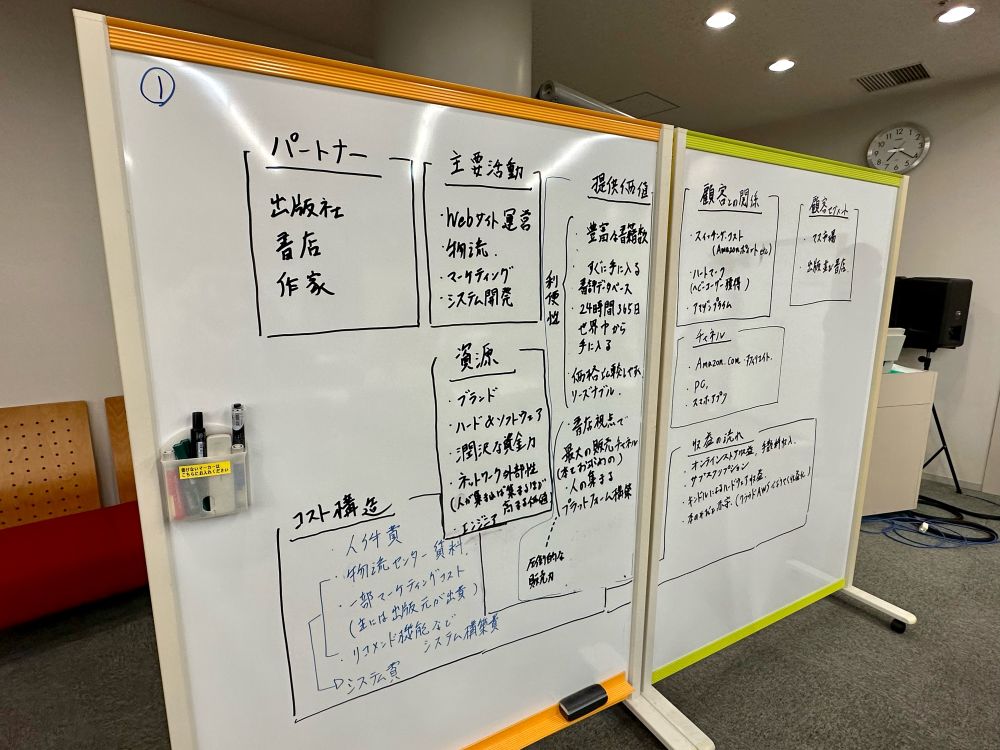 ①
パートナー
出版社
書店
作家
主要活動
・Webサイト運営
・物流.
・マーケティング
・システム開発
資源
・ブランド
・ハード&ソフトウェア
・潤沢な資金力
・ネットワーク外部性
(人が集まれば集まるほど
高まる価値)
・エンジニア
提供価値
利便性
・豊富な書籍数
・すぐに手に入る
書評データベース
・24時間365日
世界中から
手に入る
・価格比較しやすい
リーズナブル.
・書店視点で
最大の販売チャネル
(本をお試めの)
・人の集まる
プラットフォーム構築
圧倒的な
販売力
コスト構造
・人件費
・物流センター賃料
・一部マーケティングコスト
(主には出版元が出費)
・リコメンド機能など
システム構築費
システム費
書けないマーカーは
こちらにお入れください
顧客との関係
・スイッチングコスト
(Amazonポイントetc)
・ハートマーク
(ヘビーユーザー獲得)
・アマゾンプライム
顧客セグメント
・マス市場
・出版社&書店
チャネル
・Amazon.com
・PC.
・スマホアプリ
収益の流れ
・オンラインストア収益、手数料収入.
・サブスクリプション
・キンドルによるハードウェア収益.